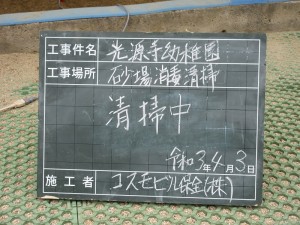 工事件名 光源寺幼稚園
工事場所 砂場消毒清掃
清掃中
令和3年4月3日
施工者 コスモビル保全(株)